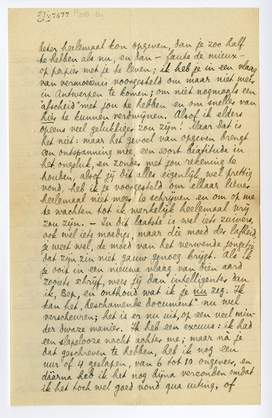 liever heelemaal kon opgeven, dan je zoo half
te hebben als nu, en dan – faute de mieux –
op papier met je te leven; ik heb je in een vlaag
van vermoeienis voorgesteld om maar niet meer
in Antwerpen te komen; om niet nogmaals een
"afscheid" met jou te hebben en om sneller van
hier te kunnen verdwijnen. Alsof ik elders
opeens veel gelukkiger zou zijn! Maar dat is
het niet: maar het gevoel van opgeven brengt
een ontspanning mee, een soort beatitude in
het ongeluk, en zonder met jou rekening te
houden, alsof jij dit alles eigenlijk wel prettig
vond, heb ik je voorgesteld om elkaar liever
heelemaal niet meer te schrijven en om op me
te wachten tot ik werkelijk heelemaal vrij
zou zijn. – In dit laatste is wel iets zuivers,
ook wel iets moedigs, maar die moed der lafheid,
je weet wel, de moed van het verwende jongetje
dat zijn zin niet gauw genoeg krijgt. Als ik
je ooit in een nieuwe vlaag van dien aard
zooiets schrijf, wees jij dan intelligenter dan
ik, Bep, en onthoud wat ik je nu zeg. Ik
kan het "beschamende document" nu wel
verscheuren; het is er nu uit, op een veel min-
der dwaze manier. Ik heb een excuus: ik had
een slapelooze nacht achter me; maar na je
dat geschreven te hebben, heb ik nog een
uur of 4 geslapen, van 6 tot 10 ongeveer, en
daarna heb ik het nog bijna verzonden omdat
ik het toch wel goed vond qua uiting, of